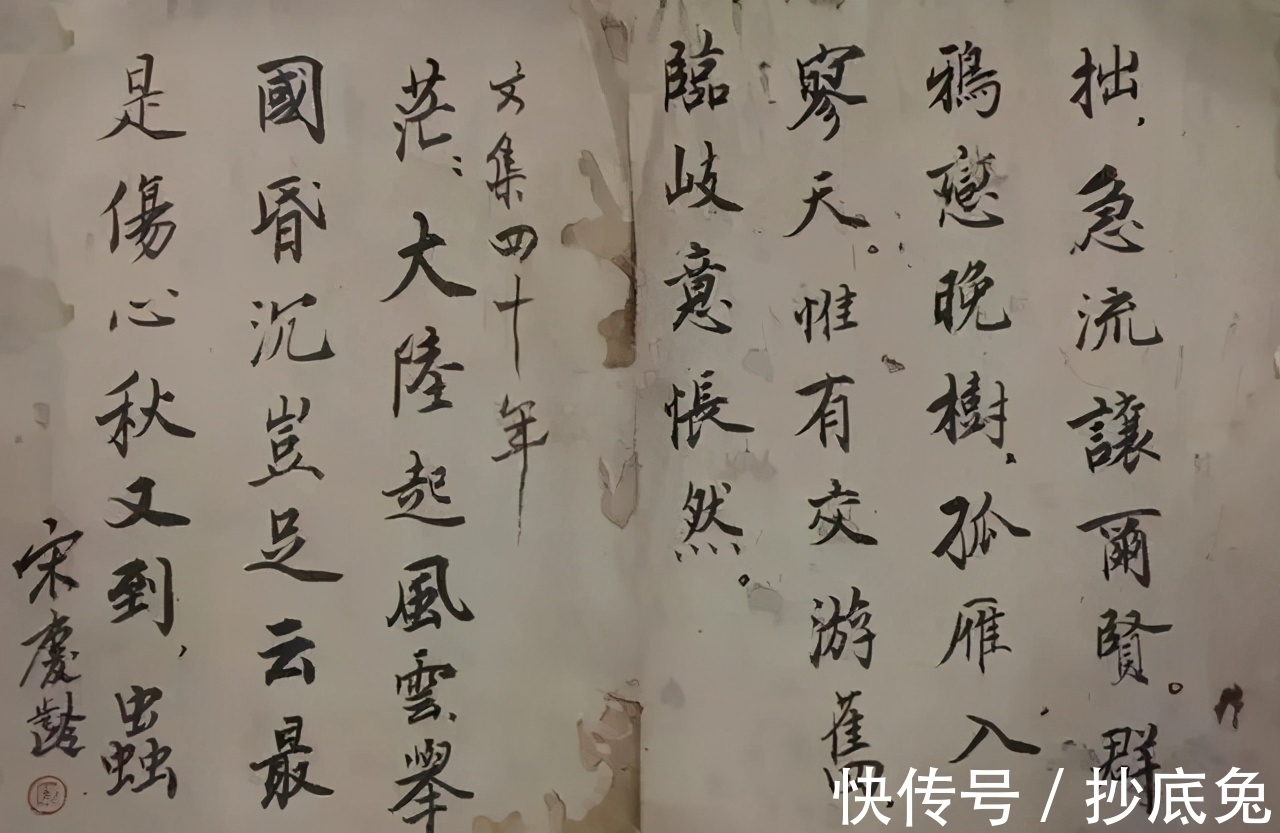 拙，急流讓爾賢。群
鴉戀晚樹，孤雁入
寥天。惟有交游舊
臨岐意悵然。
文集四十年
茫〻大陸起風雲，舉
國昏沉豈足云最
是傷心秋又到，蟲
宋慶齡
快传号 / 抄底兔